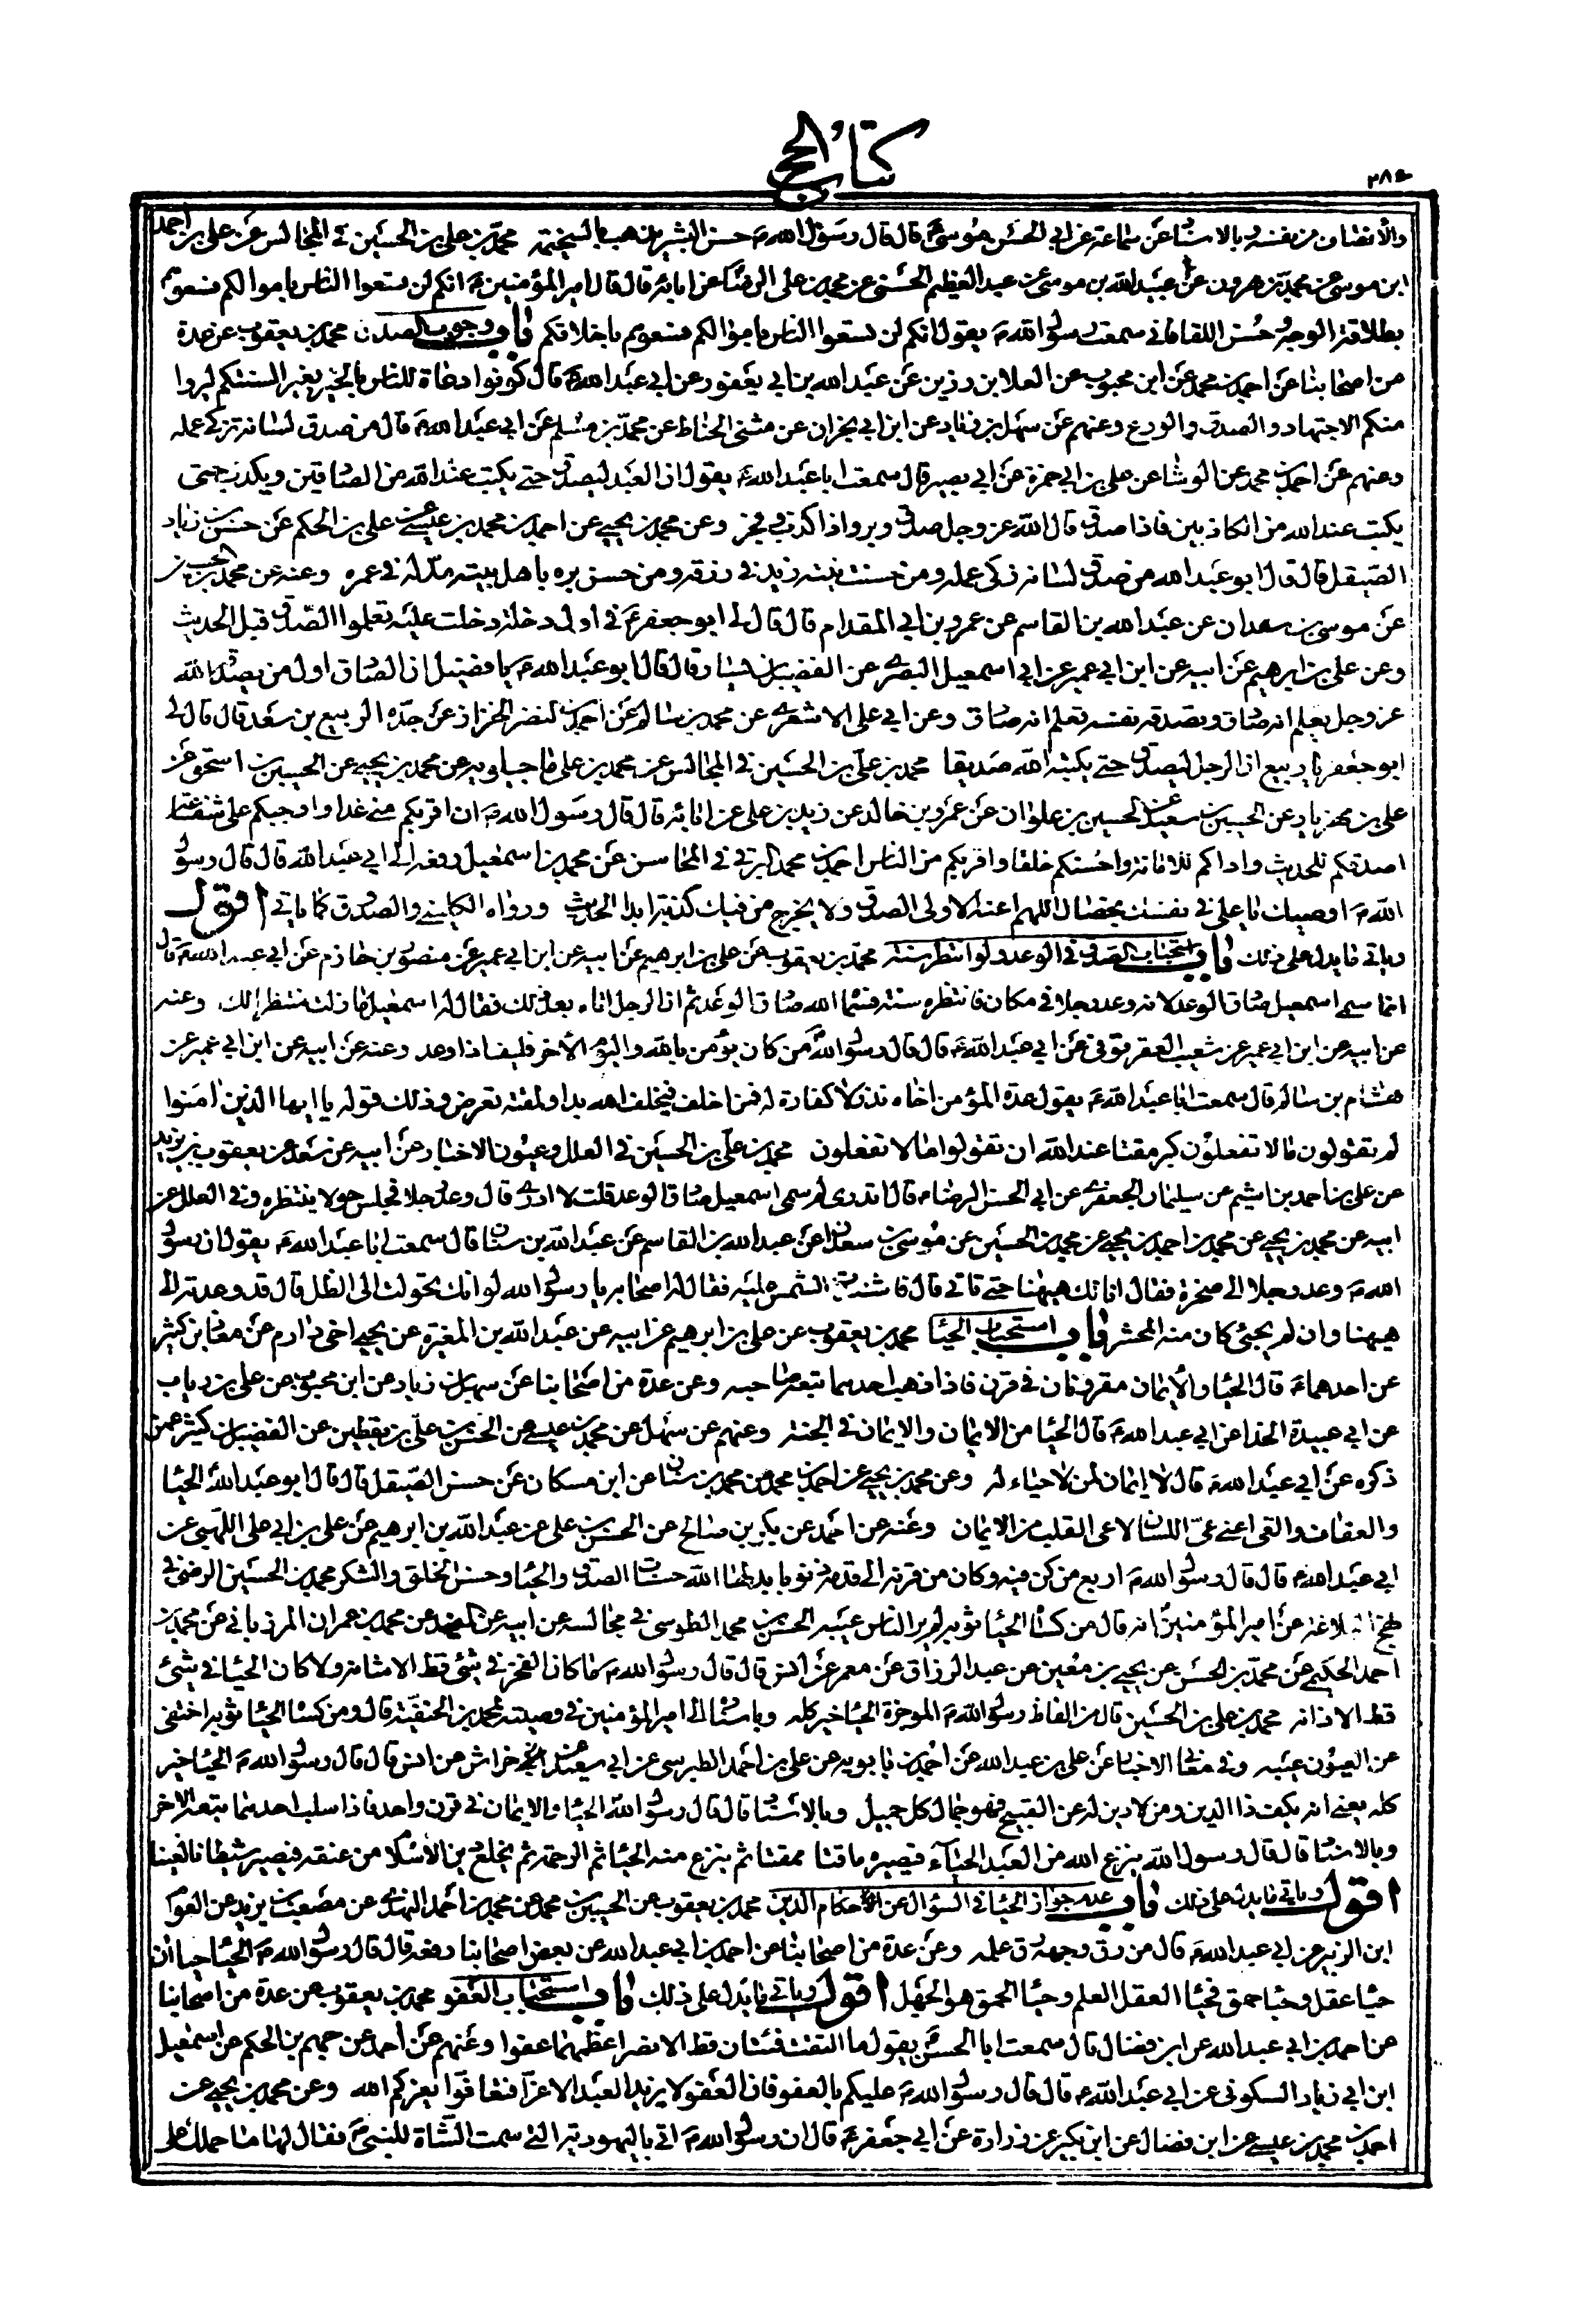 كتاب الحج
٢٨٤
والانصاف من نفسه وبالاسناد عن سماعة عن ابي الحسن موسى ع قال قال رسول الله ص حسن البشر يذهب بالسخيمة محمد بن علي بن الحسين في المجالس عن علي بن احمد
ابن موسى عن محمد بن هرون عن عبيد الله بن موسى عن عبد العظيم الحسني عن محمد بن علي الرضا عن ابائه قال قال امير المؤمنين ع انكم لن تسعوا الناس باموالكم فسعوهم
بطلاقة الوجه وحسن اللقا فاني سمعت رسول الله ص يقول انكم لن تسعوا الناس باموالكم فسعوهم باخلاقكم باب وجوب الصدق محمد بن يعقوب عن عدة
من اصحابنا عن احمد بن محمد عن ابن محبوب عن العلا بن رزين عن عبد الله بن ابي يعفور عن ابي عبد الله ع قال كونوا دعاة للناس بالخير بغير السنتكم ليروا
منكم الاجتهاد والصدق والورع وعنهم عن سهل بن زياد عن ابن ابي نجران عن مثنى الحناط عن محمد بن مسلم عن ابي عبد الله ع قال من صدق لسانه زكى عمله
وعنهم عن احمد بن محمد عن الوشا عن علي بن ابي حمزة عن ابي بصير قال سمعت ابا عبد الله ع يقول ان العبد ليصدق حتى يكتب عند الله من الصادقين ويكذب حتى
يكتب عند الله من الكاذبين فاذا صدق قال الله عز وجل صدق وبر واذا كذب وفجر وعن محمد بن يحيى عن احمد بن محمد بن عيسى عن علي بن الحكم عن حسن بن زياد
الصيقل قال قال ابو عبد الله من صدق لسانه زكى عمله ومن حسنت نيته زيد في رزقه ومن حسن بره باهل بيته مد له في عمره وعنه عن محمد بن الحسين
عن موسى بن سعدان عن عبد الله بن القاسم عن عمرو بن ابي المقدام قال قال لي ابو جعفر ع في اول دخلة دخلت عليه تعلموا الصدق قبل الحديث
وعن علي بن ابرهيم عن ابيه عن ابن ابي عمير عن ابي اسمعيل البصري عن الفضيل بن يسار قال قال ابو عبد الله ع يا فضيل ان الصادق اول من يصدقه الله
عز وجل يعلم انه صادق وتصدقه نفسه تعلم انه صادق وعن ابي علي الاشعري عن محمد بن سالم عن احمد بن النضر الخزاز عن جده الربيع بن سعد قال قال لي
ابو جعفر يا ربيع ان الرجل ليصدق حتى يكتبه الله صديقا محمد بن علي بن الحسين في المجالس عن محمد بن علي ماجيلويه عن محمد بن يحيى عن الحسين بن اسحق عن
علي بن مهزيار عن الحسين بن سعيد عن الحسين بن علوان عن عمرو بن خالد عن زيد بن علي عن ابائه قال قال رسول الله ص ان اقربكم مني غدا واوجبكم علي شفاعة
اصدقكم للحديث واداكم للامانة واحسنكم خلقا واقربكم من الناس احمد بن محمد البرقي في المحاسن عن محمد بن اسمعيل رفعه الى ابي عبد الله قال قال رسول
الله ص اوصيك يا علي في نفسك بخصال اللهم اعنه الاولى الصدق ولا يخرج من فيك كذبة ابدا الحديث ورواه الكليني والصدوق كما ياتي اقول
وياتي ما يدل على ذلك باب استحباب الصدق في الوعد ولو انتظر سنة محمد بن يعقوب عن علي بن ابرهيم عن ابيه عن ابن ابي عمير عن منصور بن حازم عن ابي عبد الله ع قال
انما سمي اسمعيل صادق الوعد لانه وعد رجلا في مكان فانتظره سنة فسماه الله صادق الوعد ثم ان الرجل اتاه بعد ذلك فقال له اسمعيل ما زلت منتظرا لك وعنه
عن ابيه عن ابن ابي عمير عن شعيب العقرقوفي عن ابي عبد الله ع قال قال رسول الله من كان يؤمن بالله واليوم الاخر فليف اذا وعد وعنه عن ابيه عن ابن ابي عمير عن
هشام بن سالم قال سمعت ابا عبد الله ع يقول عدة المؤمن اخاه نذر لا كفارة له فمن اخلف فبخلف الله بدا ولمقته تعرض وذلك قوله يا ايها الذين امنوا
لم تقولون ما لا تفعلون كبر مقتا عند الله ان تقولوا ما لا تفعلون محمد بن علي بن الحسين في العلل وعيون الاخبار عن ابيه عن سعد عن يعقوب بن يزيد
عن علي بن احمد بن اشيم عن سليمان الجعفري عن ابي الحسن الرضا ع قال تدري لم سمي اسمعيل صادق الوعد قلت لا ادري قال وعد رجلا فجلس حولا ينتظره وفي العلل عن
ابيه عن محمد بن يحيى عن محمد بن احمد بن يحيى عن محمد بن الحسين عن موسى بن سعدان عن عبد الله بن القاسم عن عبد الله بن سنان قال سمعت ابا عبد الله ع يقول ان رسول
الله ص وعد رجلا الى صخرة فقال انا لك هيهنا حتى تاتي قال فاشتدت الشمس عليه فقال له اصحابه يا رسول الله لو انك تحولت الى الظل قال قد وعدته الى
هيهنا وان لم يجئ كان منه المحشر باب استحباب الحيا محمد بن يعقوب عن علي بن ابرهيم عن ابيه عن عبد الله بن المغيرة عن يحيى اخي دارم عن معاذ بن كثير
عن احدهما ع قال الحيا والايمان مقرونان في قرن فاذا ذهب احدهما تبعه صاحبه وعن عدة من اصحابنا عن سهل بن زياد عن ابن محبوب عن علي بن رياب
عن ابي عبيدة الحذا عن ابي عبد الله ع قال الحيا من الايمان والايمان في الجنة وعنهم عن سهل عن محمد بن عيسى عن الحسن بن علي بن يقطين عن الفضيل بن كثير عمن
ذكره عن ابي عبد الله ع قال لا ايمان لمن لا حياء له وعن محمد بن يحيى عن احمد بن محمد عن محمد بن سنان عن ابن مسكان عن حسن الصيقل قال قال ابو عبد الله الحيا
والعفاف والعي اعني عي اللسان لا عي القلب من الايمان وعنه عن احمد عن بكر بن صالح عن الحسن بن علي عن عبد الله بن ابرهيم عن علي بن ابي علي اللهبي عن
ابي عبد الله ع قال قال رسول الله ص اربع من كن فيه وكان من قرنه الى قدمه ذنوبا بدلها الله حسنات الصدق والحيا وحسن الخلق والشكر محمد بن الحسين الرضي في
نهج البلاغة عن امير المؤمنين انه قال من كساه الحيا ثوبه لم ير الناس عيبه الحسن بن محمد الطوسي في مجالسه عن ابيه عن المفيد عن محمد بن عمران المرزباني عن محمد بن
احمد الحكيمي عن محمد بن الحسن عن يحيى بن معين عن عبد الرزاق عن معمر عن انس قال قال رسول الله ص ما كان الفحش في شئ قط الا شانه ولا كان الحيا في شئ
قط الا زانه محمد بن علي بن الحسين قال من الفاظ رسول الله ص الموجزة الحيا خير كله وباسناده الى امير المؤمنين في وصيته لمحمد بن الحنفية قال ومن كساه الحيا ثوبه اختفى
عن العيون عيبه وفي معاني الاخبار عن علي بن عبد الله عن احمد بن بابويه عن علي بن احمد الطبرسي عن ابي سعيد عن خراش عن انس قال قال رسول الله ص الحيا خير
كله يعني انه يكف ذا الدين ومن لا دين له عن القبيح فهو جماع كل جميل وبالاسناد قال قال رسول الله الحيا والايمان في قرن واحد فاذا سلب احدهما تبعه الاخر
وبالاسناد قال قال رسول الله ينزع الله من العبد الحياء فيصيره ماقتا ممقتا ثم ينزع منه الحيا ثم الرحمة ثم يخلع دين الاسلام من عنقه فيصير شيطانا لعينا
اقول وياتي ما يدل على ذلك باب عدم جواز الحيا في السؤال عن احكام الدين محمد بن يعقوب عن الحسين بن محمد عن محمد بن احمد النهدي عن مصعب بن يزيد عن العوام
ابن الزبير عن ابي عبد الله ع قال من رق وجهه رق علمه وعن عدة من اصحابنا عن احمد بن ابي عبد الله عن بعض اصحابنا رفعه قال قال رسول الله ص الحيا حياان
حيا عقل وحيا حمق فحيا العقل العلم وحيا الحمق هو الجهل اقول وياتي ما يدل على ذلك باب استحباب العفو محمد بن يعقوب عن عدة من اصحابنا
عن احمد بن ابي عبد الله عن ابن فضال قال سمعت ابا الحسن ع يقول ما التقت فئتان قط الا نصر اعظمهما عفوا وعنهم عن احمد عن جهم بن الحكم عن اسمعيل
ابن ابي زياد السكوني عن ابي عبد الله ع قال قال رسول الله ص عليكم بالعفو فان العفو لا يزيد العبد الا عزا فتعافوا يعزكم الله وعن محمد بن يحيى عن
احمد بن محمد بن عيسى عن ابن فضال عن ابن بكير عن زرارة عن ابي جعفر ع قال ان رسول الله ص اتي باليهودية التي سمت الشاة للنبي ص فقال لها ما حملك على